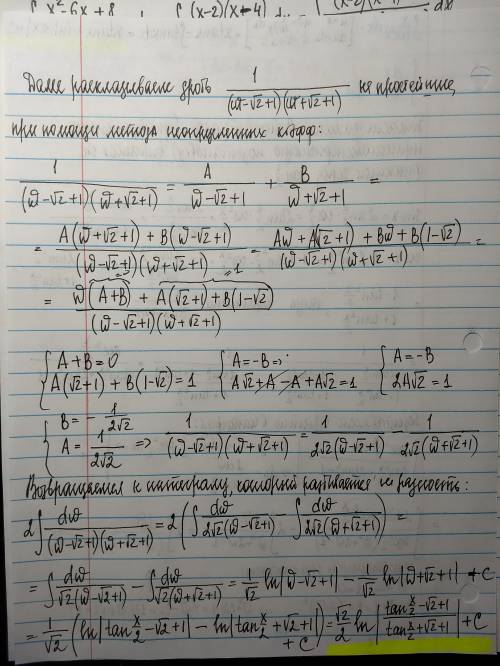 ∫ x²-6x+8 ∫ (x-2)(x-4) (x-2)(x-4) dx
Далее раскладываем дробь 1/((ω-√2+1)(ω+√2+1)) на простейшие,
при помощи метода неопределенных коэфф:
1/((ω-√2+1)(ω+√2+1)) = A/(ω-√2+1) + B/(ω+√2+1) =
= (A(ω+√2+1) + B(ω-√2+1))/((ω-√2+1)(ω+√2+1)) = (Aω+A(√2+1) + Bω+B(1-√2))/((ω-√2+1)(ω+√2+1)) =
= (ω(A+B) + A(√2+1)+B(1-√2))/((ω-√2+1)(ω+√2+1))
=0 =1
{ A+B=0 { A=-B => { A=-B
A(√2+1) + B(1-√2)=1 A√2+A-A+A√2=1 2A√2=1
{ B= -1/(2√2)
A= 1/(2√2) => 1/((ω-√2+1)(ω+√2+1)) = 1/(2√2(ω-√2+1)) - 1/(2√2(ω+√2+1))
Возвращаемся к интегралу, который разбивается на разность:
2∫ dω/((ω-√2+1)(ω+√2+1)) = 2(∫ dω/(2√2(ω-√2+1)) - ∫ dω/(2√2(ω+√2+1))) =
= ∫ dω/(√2(ω-√2+1)) - ∫ dω/(√2(ω+√2+1)) = 1/√2 ln|ω-√2+1| - 1/√2 ln|ω+√2+1| +C
= 1/√2 (ln|tan x/2 -√2+1| - ln|tan x/2 +√2+1|) +C = √2/2 ln|(tan x/2 -√2+1)/(tan x/2 +√2+1)| +C